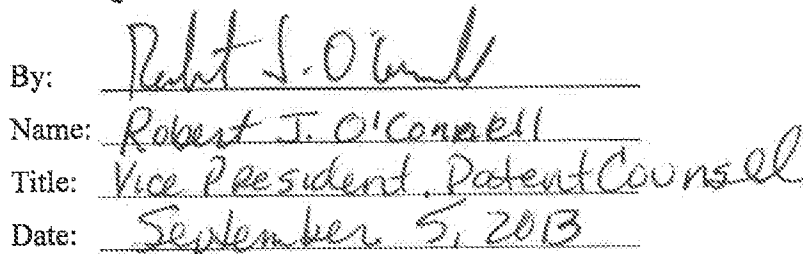 By: Robert J. O'Connell
Name: Robert J. O'Connell
Title: Vice President, Patent Counsel
Date: September 5, 2013